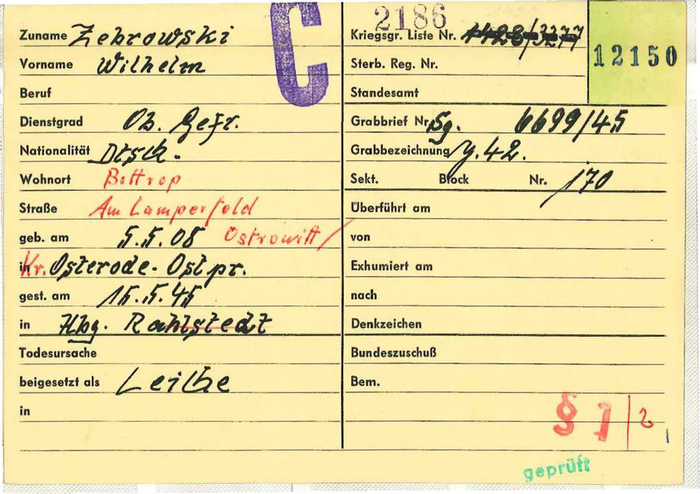 Zuname Zebrowski
Vorname Wilhelm
Beruf
Dienstgrad Ob. Gefr.
Nationalität Dtsch.
Wohnort Bottrop
Straße Am Lamperfeld
geb. am 5.5.08 Ostrowitt/
in Kr. Osterode-Ostpr.
gest. am 15.5.45
in Hbg. Rahlstedt
Todesursache
beigesetzt als Leiche
in
C
2186
Kriegsgr. Liste Nr. 1428/3277
12150
Sterb. Reg. Nr.
Standesamt
Grabbrief Nr. Sg. 6699/45
Grabbezeichnung y. 42.
Sekt. Block Nr. 170
Überführt am
von
Exhumiert am
nach
Denkzeichen
Bundeszuschuß
Bem.
§ 1/2
geprüft